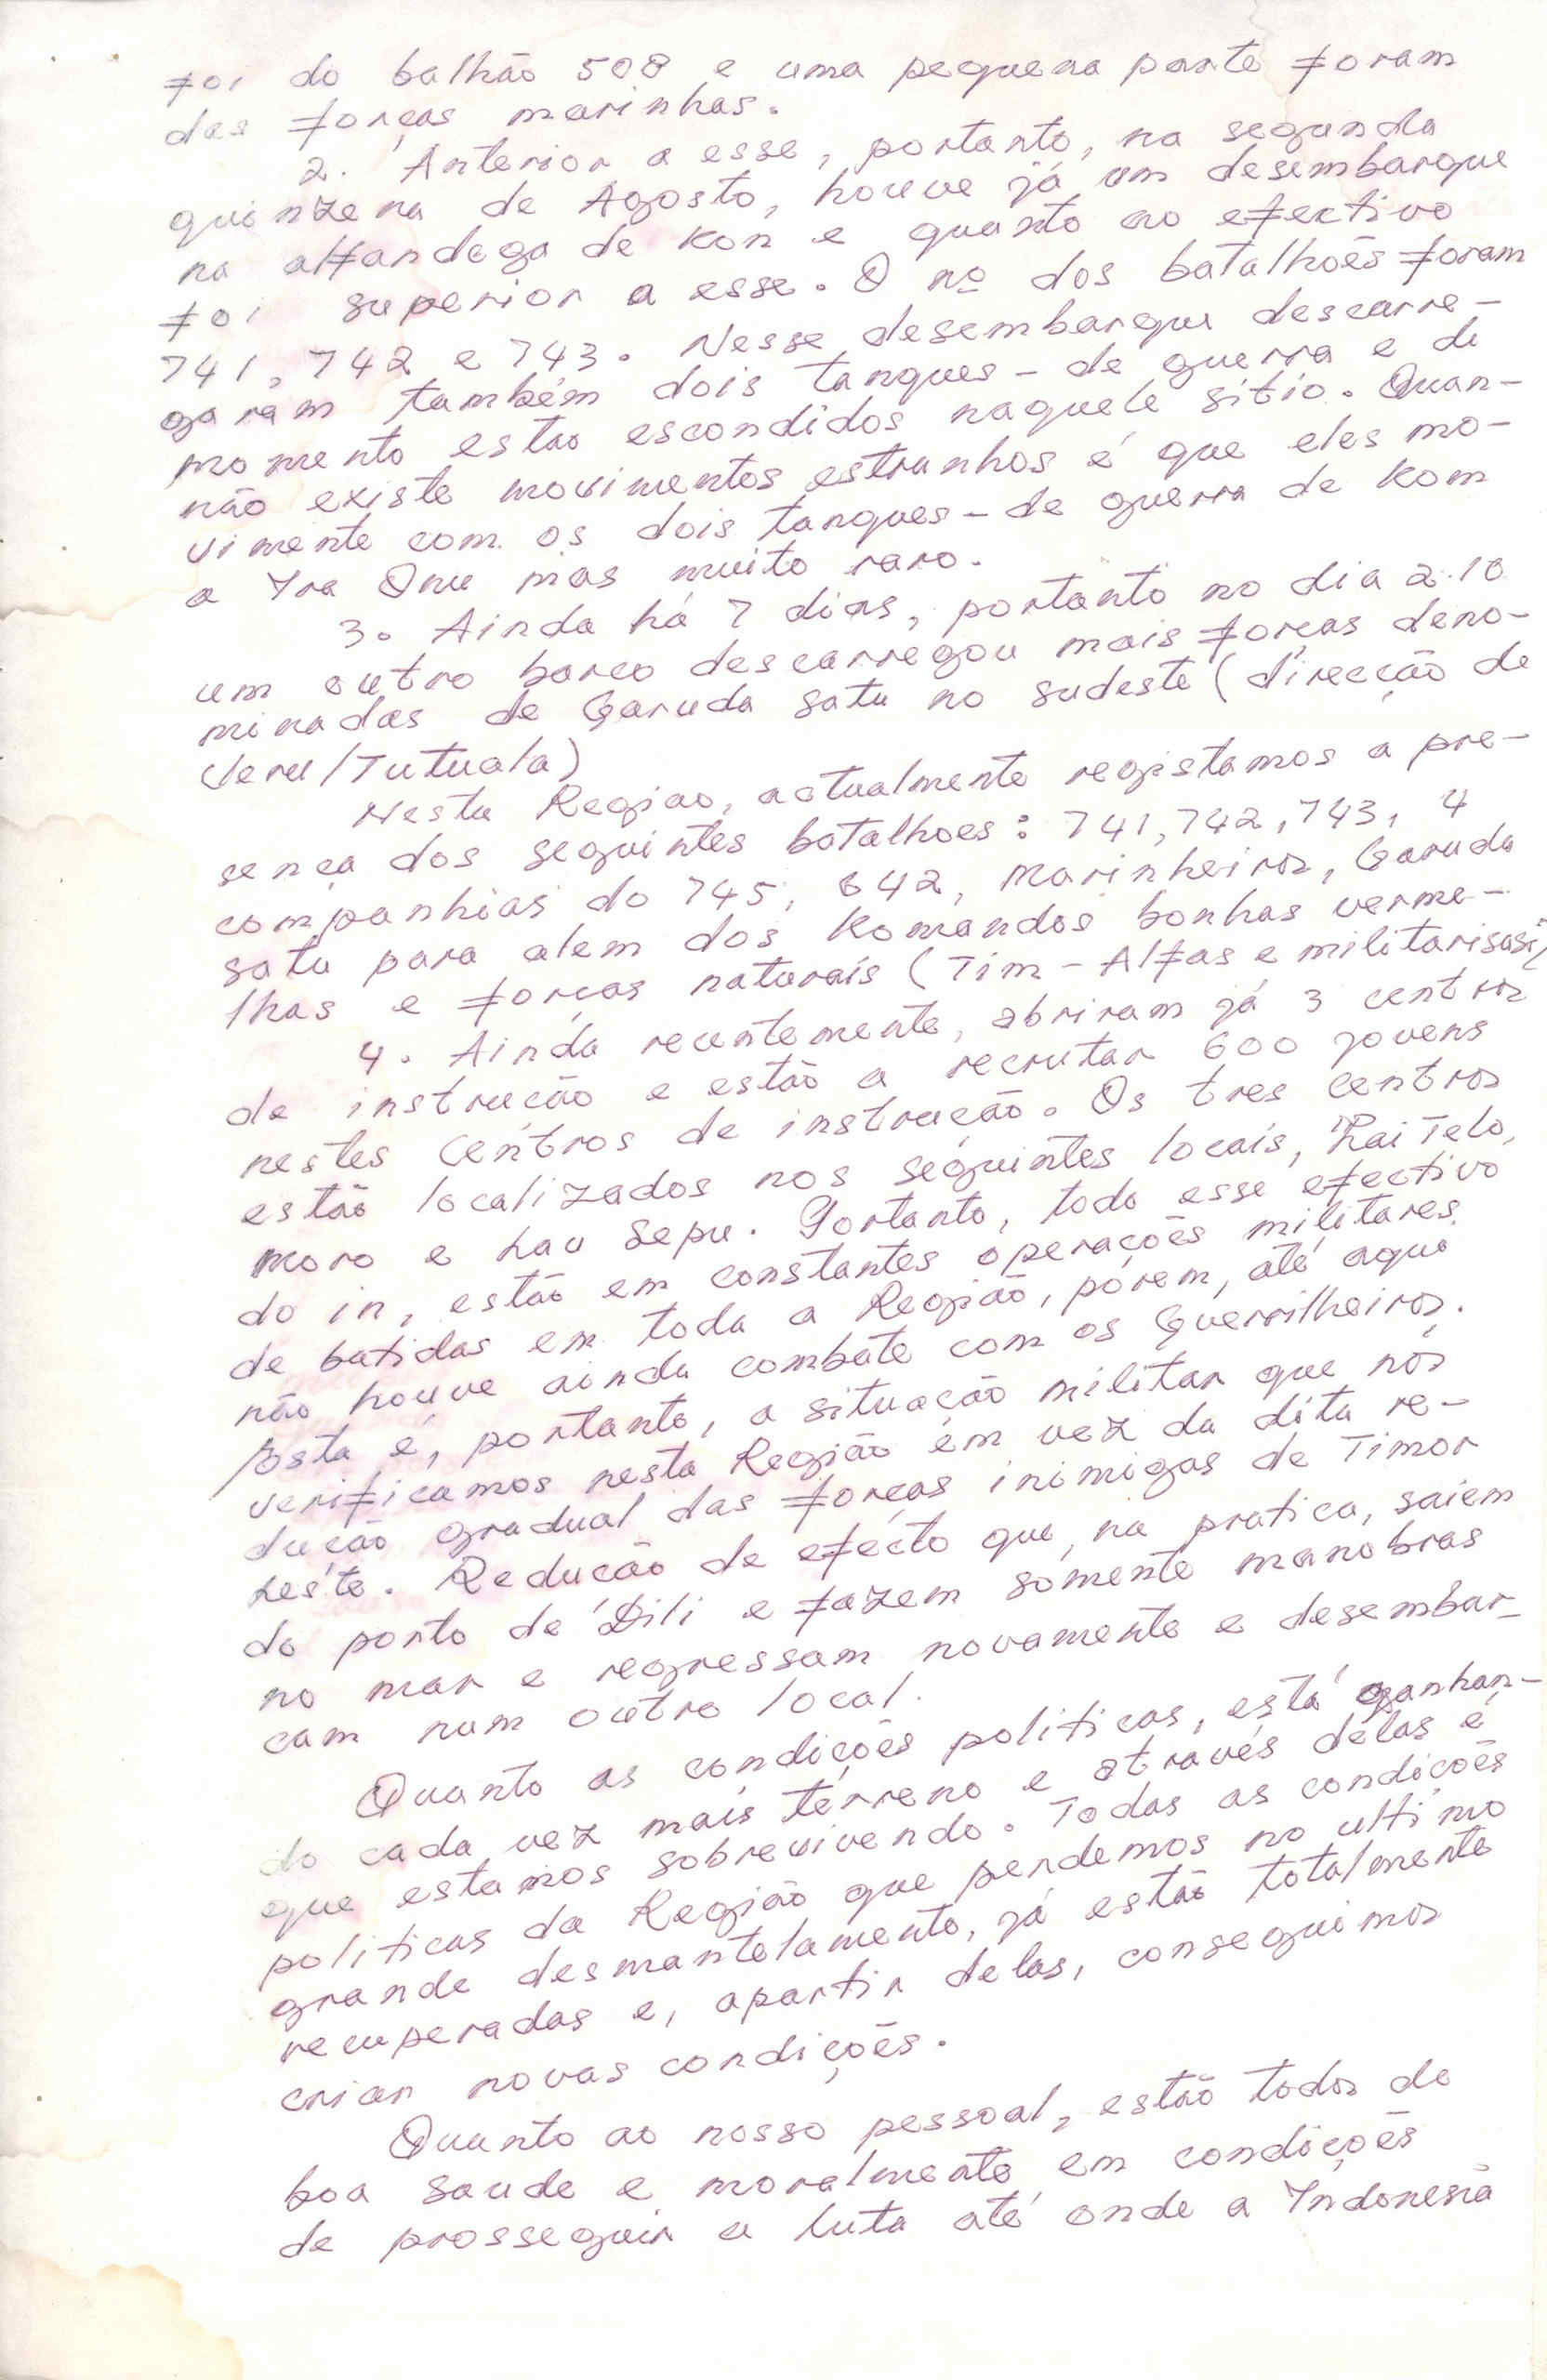 foi do balhão 508 e uma pequena parte foram
das forças marinhas.
2. Anterior a esse, portanto, na segunda
quinzena de Agosto, houve já um desembarque
na alfandega de Kon e quanto ao efectivo
foi superior a esse. O nº dos batalhões foram
741, 742 e 743. Nesse desembarque descarre-
garam também dois tanques - de guerra e de
momento estão escondidos naquele sitio. Quan-
não existe movimentos estranhos é que eles mo-
vimente com os dois tanques - de guerra de Kom
a Yra Onu mas muito raro.
3. Ainda há 7 dias, portanto no dia 2.10
um outro barco descarregou mais forças deno-
minadas de Garuda satu no sudeste (direcção de
Veru/Tutuala)
Nesta Regiao, actualmente registamos a pre-
sença dos seguintes batalhoes: 741, 742, 743, 4
companhias do 745, 642, Marinheiros, Garuda
satu para alem dos Komandos bonhas verme-
lhas e forças naturais (Tim - Alfas e militarisasi)
4. Ainda recentemente, abriram já 3 centros
de instrução e estão a recrutar 600 jovens
nestes Centros de instrução. Os tres Centros
estão localizados nos seguintes locais, Lai Telo,
Moro e Lau Sepu. Portanto, todo esse efectivo
do in, estão em constantes operações militares
de batidas em toda a Região, pórem, até aqui
não houve ainda combate com os Guerrilheiros.
Esta é, portanto, a situação militar que nós
verificamos nesta Região em vez da dita re-
dução gradual das forças inimigas de Timor
Leste. Redução de efécto que, na pratica, saiem
do porto de Dili e fazem sómente manobras
no mar e regressam novamente e desembar-
cam num outro local.
Quanto as condições politicas, está ganhan-
do cada vez mais terreno e através delas é
que estamos sobrevivendo. Todas as condições
politicas da Região que perdemos no ultimo
grande desmantelamento, já estão totalmente
recuperadas e, apartir delas, conseguimos
criar novas condições.
Quanto ao nosso pessoal, estão todos de
boa saude e moralmente em condições
de prosseguir a luta até onde a Yndonesia